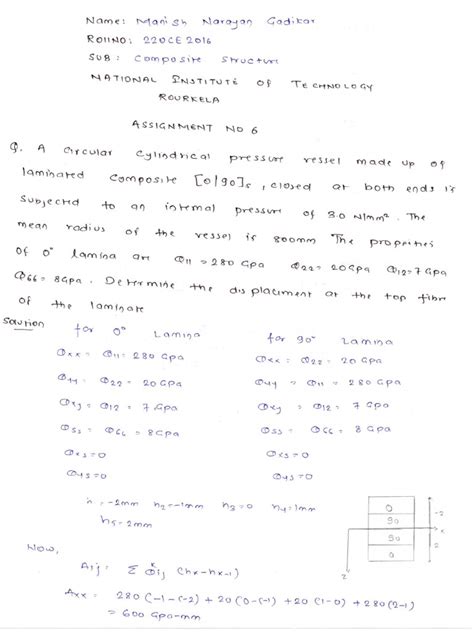 Name: Manish Narayan Gadikar
ROllNO: 220CE2016
SUB: Composite Structure
NATIONAL INSTITUTE OF TECHNOLOGY
ROURKELA
ASSIGNMENT NO 6
Q. A circular cylindrical pressure vessel made up of
laminated composite [0/90]s, closed at both ends is
subjected to an internal pressure of 3.0 N/mm². The
mean radius of the vessel is 800mm The properties
of 0° lamina are Q11 = 280 Gpa Q22 = 20Gpa Q12 = 7 Gpa
Q66 = 8Gpa. Determine the displacment at the top fibre
of the laminate
Soution for 0° Lamina for 90° Lamina
Qxx = Q11 = 280 Gpa Qxx = Q22 = 20 Gpa
Qyy = Q22 = 20 Gpa Qyy = Q11 = 280 Gpa
Qxy = Q12 = 7 Gpa Qxy = Q12 = 7 Gpa
Qss = Q66 = 8 Gpa Qss = Q66 = 8 Gpa
Qxs = 0 Qxs = 0
Qys = 0 Qys = 0
= -2mm h2 = -1mm h3 = 0 h4 = 1mm
h5 = 2mm
0
90
90
0
-2
x
2
z
Now,
Aij = Σ Qij^k (hk - hk-1)
Axx = 280(-1-(-2)) + 20(0-(-1)) + 20(1-0) + 280(2-1)
= 600 Gpa-mm